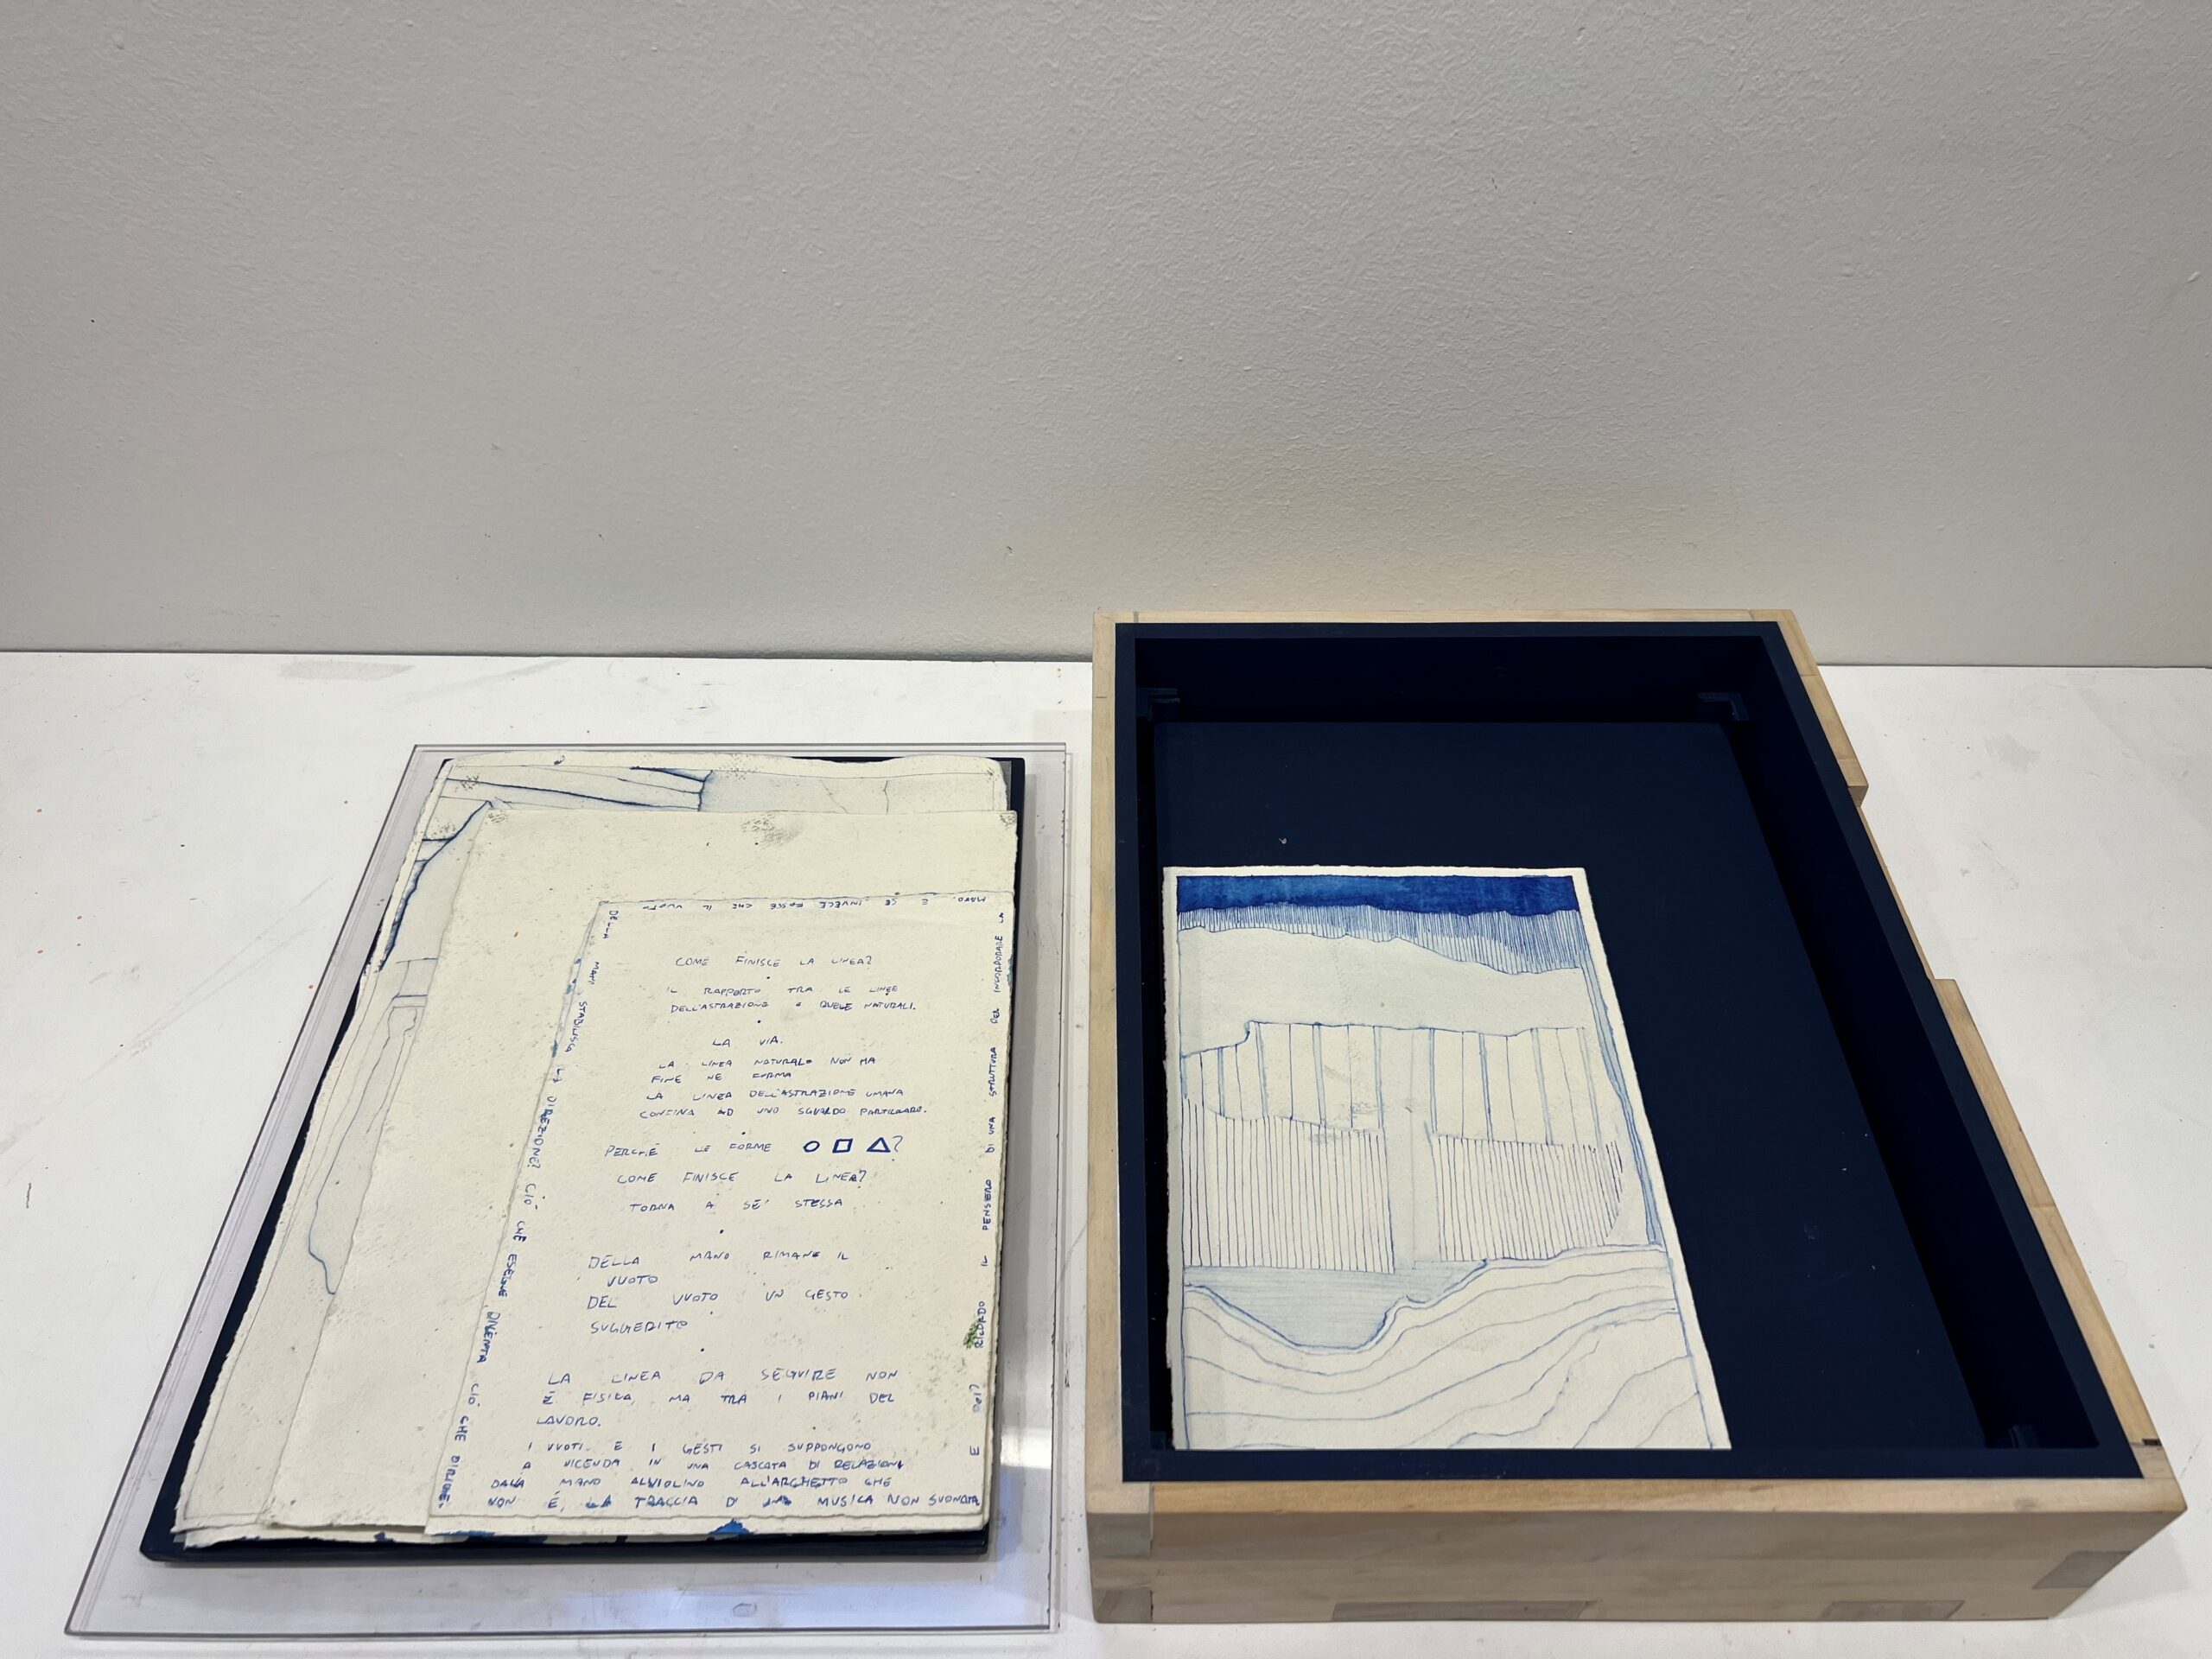 COME FINISCE LA LINEA?
IL RAPPORTO TRA LE LINEE
DELL'ASTRAZIONE E QUELE NATURALI.
LA VIA.
LA LINEA NATURALE NON HA
FINE NE FORMA
LA LINEA DELL'ASTRAZIONE UMANA
CONFINA AD UNO SGUARDO PARTICOLARE.
PERCHÉ LE FORME ?
COME FINISCE LA LINEA?
TORNA A SE' STESSA
DELLA MANO RIMANE IL
VUOTO
DEL VUOTO UN GESTO
SUGGERITO
LA LINEA DA SEGUIRE NON
È FISICA, MA TRA I PIANI DEL
LAVORO.
I VUOTI E I GESTI SI SUPPONGONO
A VICENDA IN UNA CASCATA DI RELAZIONI
DALLA MANO AL VIOLINO ALL'ARCHETTO CHE
NON È, LA TRACCIA DI UNA MUSICA NON SUONATA
E DEL RICORDO IL PENSIERO DI UNA STRUTTURA PER INCORPORARE LA
MANO. E SE INVECE FOSSE CHE IL VUOTO
DELLA MANO STABILISCA LA DIREZIONE? CIÒ CHE ESEGUE, DIVENTA CIÒ CHE DIRIGE.